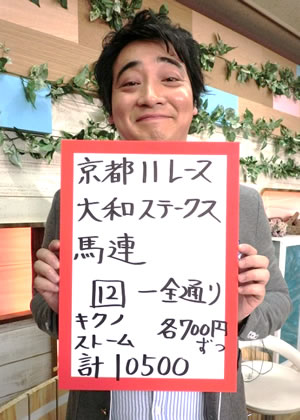 京都11レース
大和ステークス
馬連
12 ー全通り
キクノ 各700円
ストーム ずつ
計10500